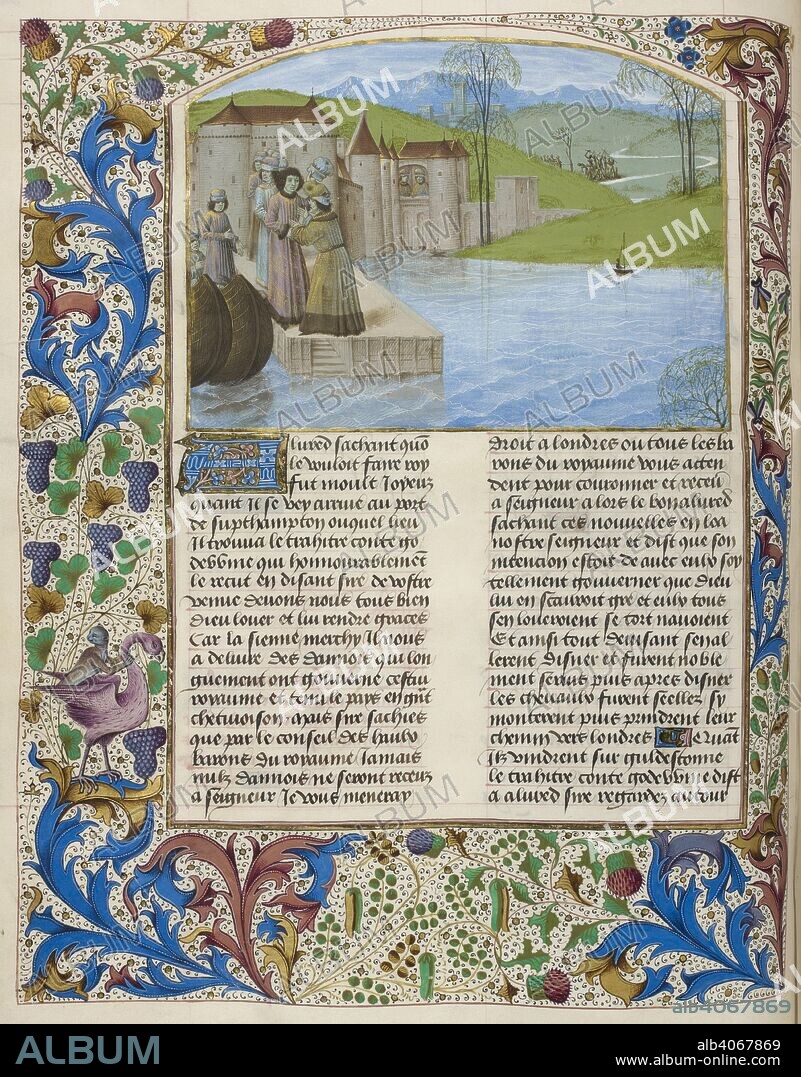 Alured sachant quō
le vouloit faire roy
fut moult Joyeux
quant Il se vey arrivé au port
de supthampton ouquel lieu
Il trouva le trahitre conte go
debbme qui honnourablemēt
le recut en disant sire de vostre
venue devons nous tous bien
dieu louer et lui rendre graces
Car la sienne merchy Il nous
a delivre des dannois qui lon
guement ont gouverne cestui
royaume et tenu le pays en gāt
chetivoison Mais sire sachies
que par le conseil des haulx
barons du royaume Jamais
nulz dannois ne seront receuz
a seigneur Je vous meneray
droit a londres ou tous les ba
rons du royaume vous atten
dent pour couronner et recevoir
a seigneur a lors le bon alured
sachant ces nouvelles en loa
nostre seigneur et dist que son
intencion estoit de avec eulx soy
tellement gouverner que dieu
lui en scauroit gre et eulx tous
sen loueroient se tort navoient
Et ainsi tout devisant sen al
lerent disner et furent noble
ment servis puis apres disner
les chevaulx furent seellez sy
monterent puis prindrent leur
chemin vers londres Quant
Ilz vindrent sur guldesdonne
le trahitre conte godebbme dist
a alured sire regardez autour
ALBUM
alb4067869
ALBUM
alb4067869
www.album-online.com